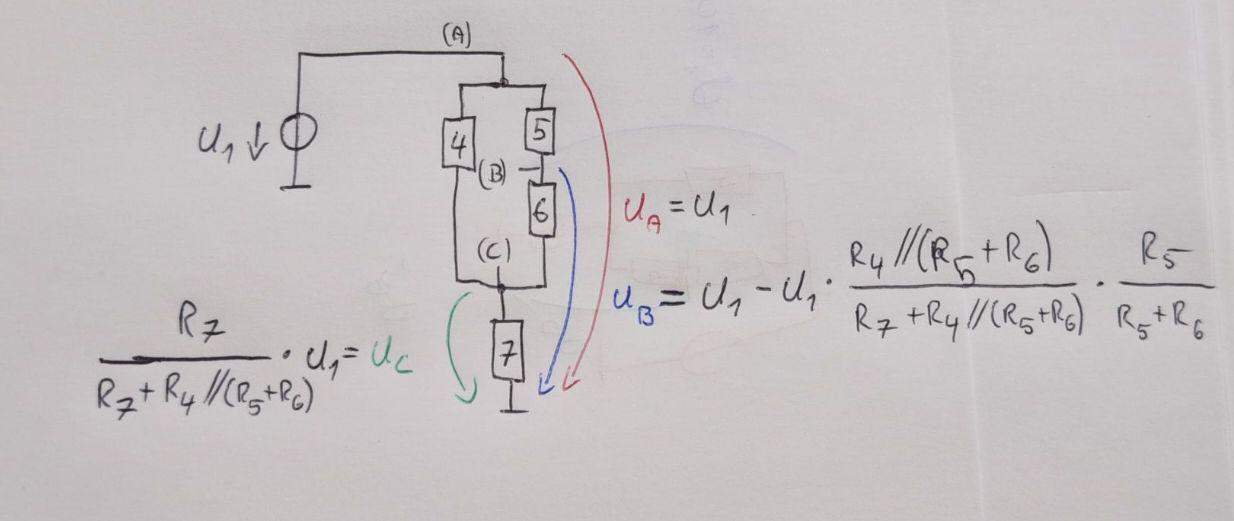 (A)
U₁ ↓
4
5
(B)
6
(C)
7
U_A = U₁
U_B = U₁ - U₁ · (R₄//(R₅+R₆))/(R₇+R₄//(R₅+R₆)) · R₅/(R₅+R₆)
R₇/(R₇+R₄//(R₅+R₆)) · U₁ = U_C